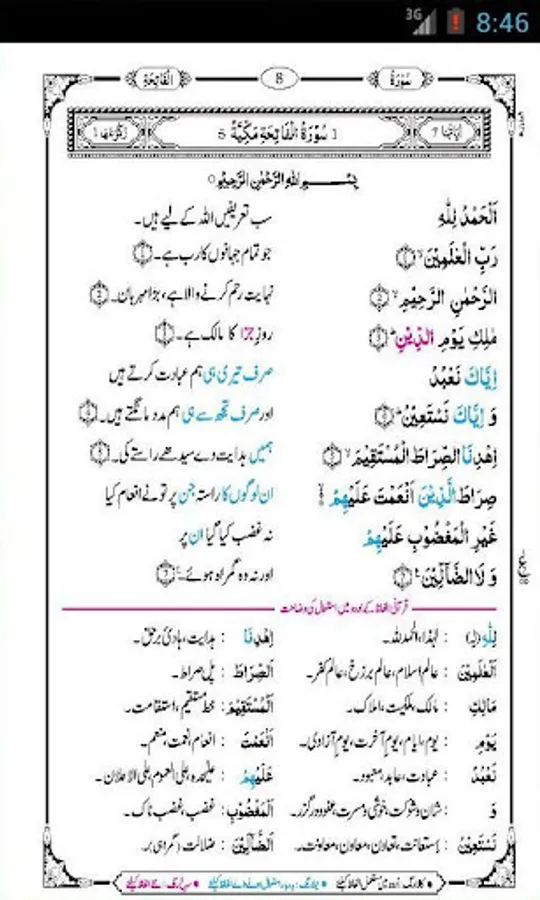 3G 8:46
سُوْرَةُ 8 الْفَاتِحَة
اٰيَاتُهَا 7 1 سُوْرَةُ الْفَاتِحَةِ مَكِّيَّةٌ 5 رُكُوْعُهَا 1
بِسْمِ اللّٰهِ الرَّحْمٰنِ الرَّحِيْمِ
اَلْحَمْدُ لِلّٰهِ سب تعریفیں اللہ کے لیے ہیں۔
رَبِّ الْعٰلَمِيْنَ ۙ 1 جو تمام جہانوں کا رب ہے۔ 1
الرَّحْمٰنِ الرَّحِيْمِ ۙ 2 نہایت رحم کرنے والا ہے، بڑا مہربان۔ 2
مٰلِكِ يَوْمِ الدِّيْنِ ؕ 3 روزِ جزا کا مالک ہے۔ 3
اِيَّاكَ نَعْبُدُ صرف تیری ہی ہم عبادت کرتے ہیں
وَ اِيَّاكَ نَسْتَعِيْنُ ؕ 4 اور صرف تجھ سے ہی ہم مدد مانگتے ہیں۔ 4
اِهْدِنَا الصِّرَاطَ الْمُسْتَقِيْمَ ۙ 5 ہمیں ہدایت دے سیدھے راستے کی۔ 5
صِرَاطَ الَّذِيْنَ اَنْعَمْتَ عَلَيْهِمْ ان لوگوں کا راستہ جن پر تو نے انعام کیا
غَيْرِ الْمَغْضُوْبِ عَلَيْهِمْ نہ غضب کیا گیا ان پر
وَ لَا الضَّآلِّيْنَ 7 اور نہ وہ گمراہ ہوئے۔ 7
قرآنی الفاظ کے اردو میں استعمال کی وضاحت
لِلّٰهِ : لہٰذا، الحمدللہ۔ اِهْدِنَا : ہدایت، ہادئ برحق۔
الْعٰلَمِيْنَ : عالم اسلام، عالم برزخ، عالم کفر۔ الصِّرَاطَ : پل صراط۔
مَالِكِ : مالک، ملکیت، املاک۔ الْمُسْتَقِيْمَ : خط مستقیم، استقامت۔
يَوْمِ : یوم، ایام، یوم آخرت، یوم آزادی۔ اَنْعَمْتَ : انعام، نعمت، منعم۔
نَعْبُدُ : عبادت، عابد، معبود۔ عَلَيْهِمْ : علیحدہ، علی العموم، علی الاعلان۔
وَ : شان و شوکت، خوشی و مسرت، عفو و درگزر۔ الْمَغْضُوْبِ : غضب، غضب ناک۔
نَسْتَعِيْنُ : استعانت، تعاون، معاون، معاونت۔ الضَّآلِّيْنَ : ضلالت (گمراہی)۔